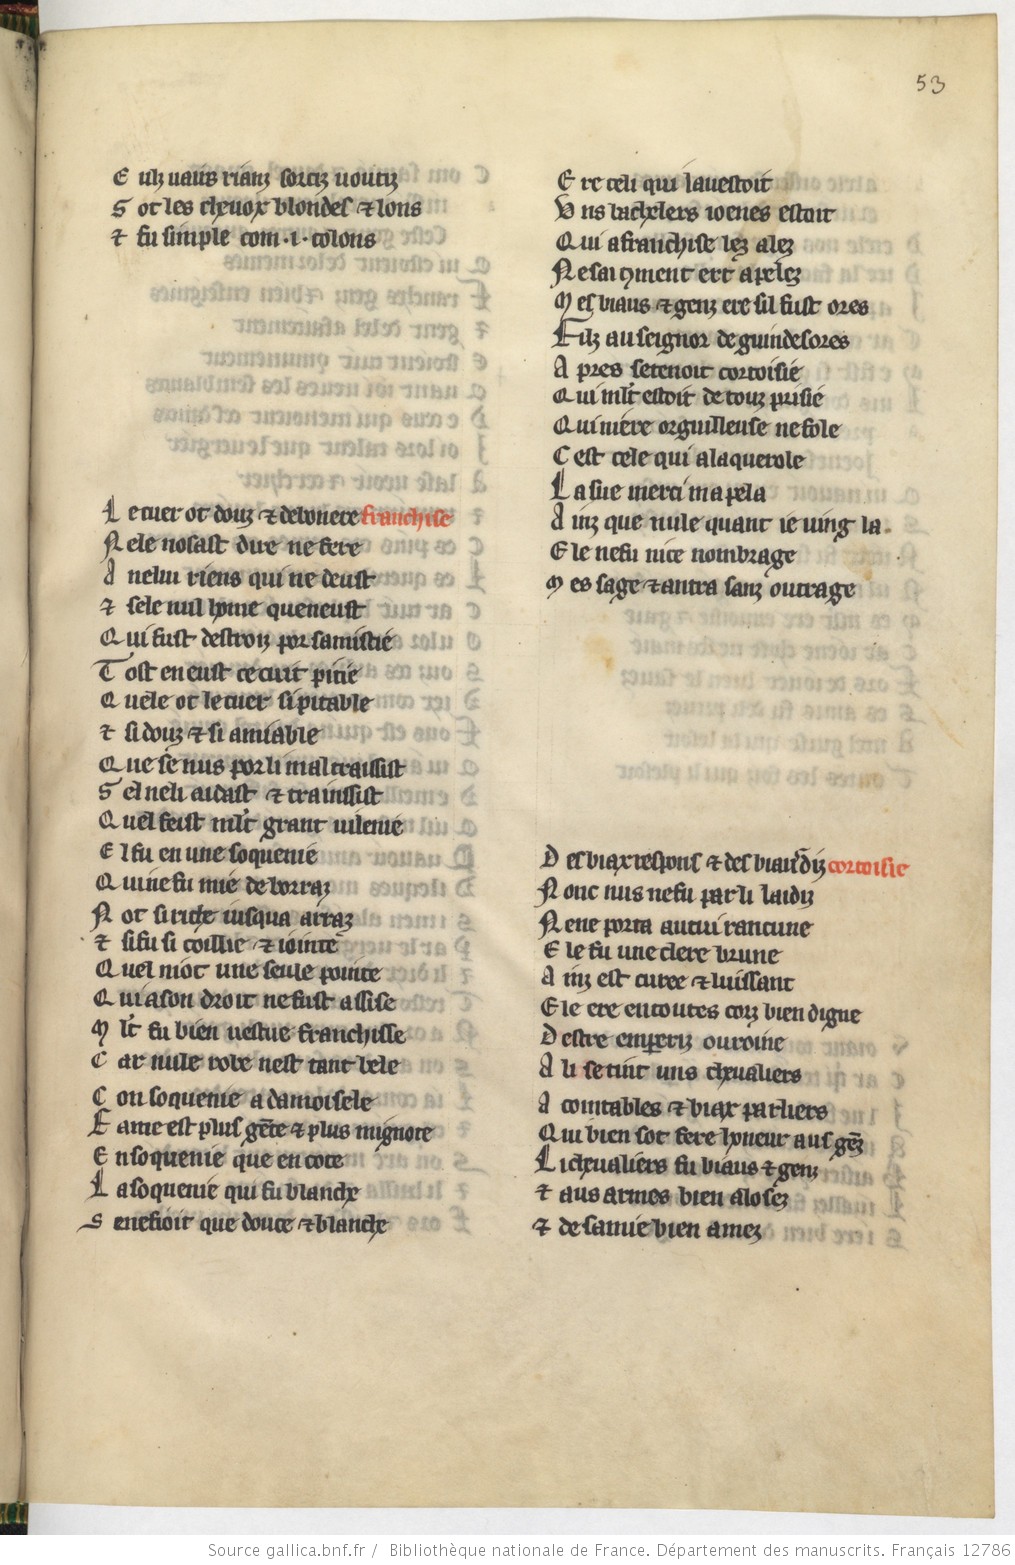 53
E ulz vaus rianz sorciz voutiz
S ot les cheuox blondes & lons
& fu simple com .i. colons
L e cuer ot douz & debonere franchise
N ele nosast dire ne fere
A nelui riens qui ne deust
& sele nul home queneust
Q ui fust destroiz por samistie
T ost en eust ce cuit pitie
Q uele ot le cuer si pitable
& si douz & si amiable
Q ue se nus por li mal traissist
S el neli aidast & trainssist
Q uel feist mlt grant vilenie
E l fu en une soquenie
Q ui ne fu mie de borraz
N ot si riche iusqua arraz
& si fu si coillie & iointe
Q uel niot une seule pointe
Q ui a son droit ne fust assise
M lt fu bien uestue franchisse
C ar nule robe nest tant bele
C on soquenie a damoisele
F ame est plus gete & plus mignote
E n soquenie que en cote
L a soquenie qui fu blanche
S enefioit que douce & blanche
E re celi qui lauestoit
V ns bachelers ioenes estoit
Q ui a franchise lez alez
N e sai qment ert apelez
M es biaus & genz ere sil fust ores
F ilz au seignor de guindesores
A pres se tenoit cortoisie
Q ui mlt estoit de touz prisie
Q ui niere orguilleuse ne fole
C est cele qui a la querole
L a sue merci mapela
A inz que nule quant ie ving la.
E le ne fu nice nombrage
M es sage & antra sanz outrage
D es biax respons & des biau diz cortoisie
N onc nus ne fu par li laidiz
N ene porta autrui rancune
E le fu une clere brune
A inz est clere & luissant
E le ere en toutes corz bien digne
D estre emperiz ou roine
A li se tint uns cheualiers
A cointables & biax parliers
Q ui bien sot fere honeur aus gez
L i cheualiers fu biaus & genz
& aus armes bien alosez
& de samie bien amez
Source gallica.bnf.fr / Bibliothèque nationale de France. Département des manuscrits. Français 12786